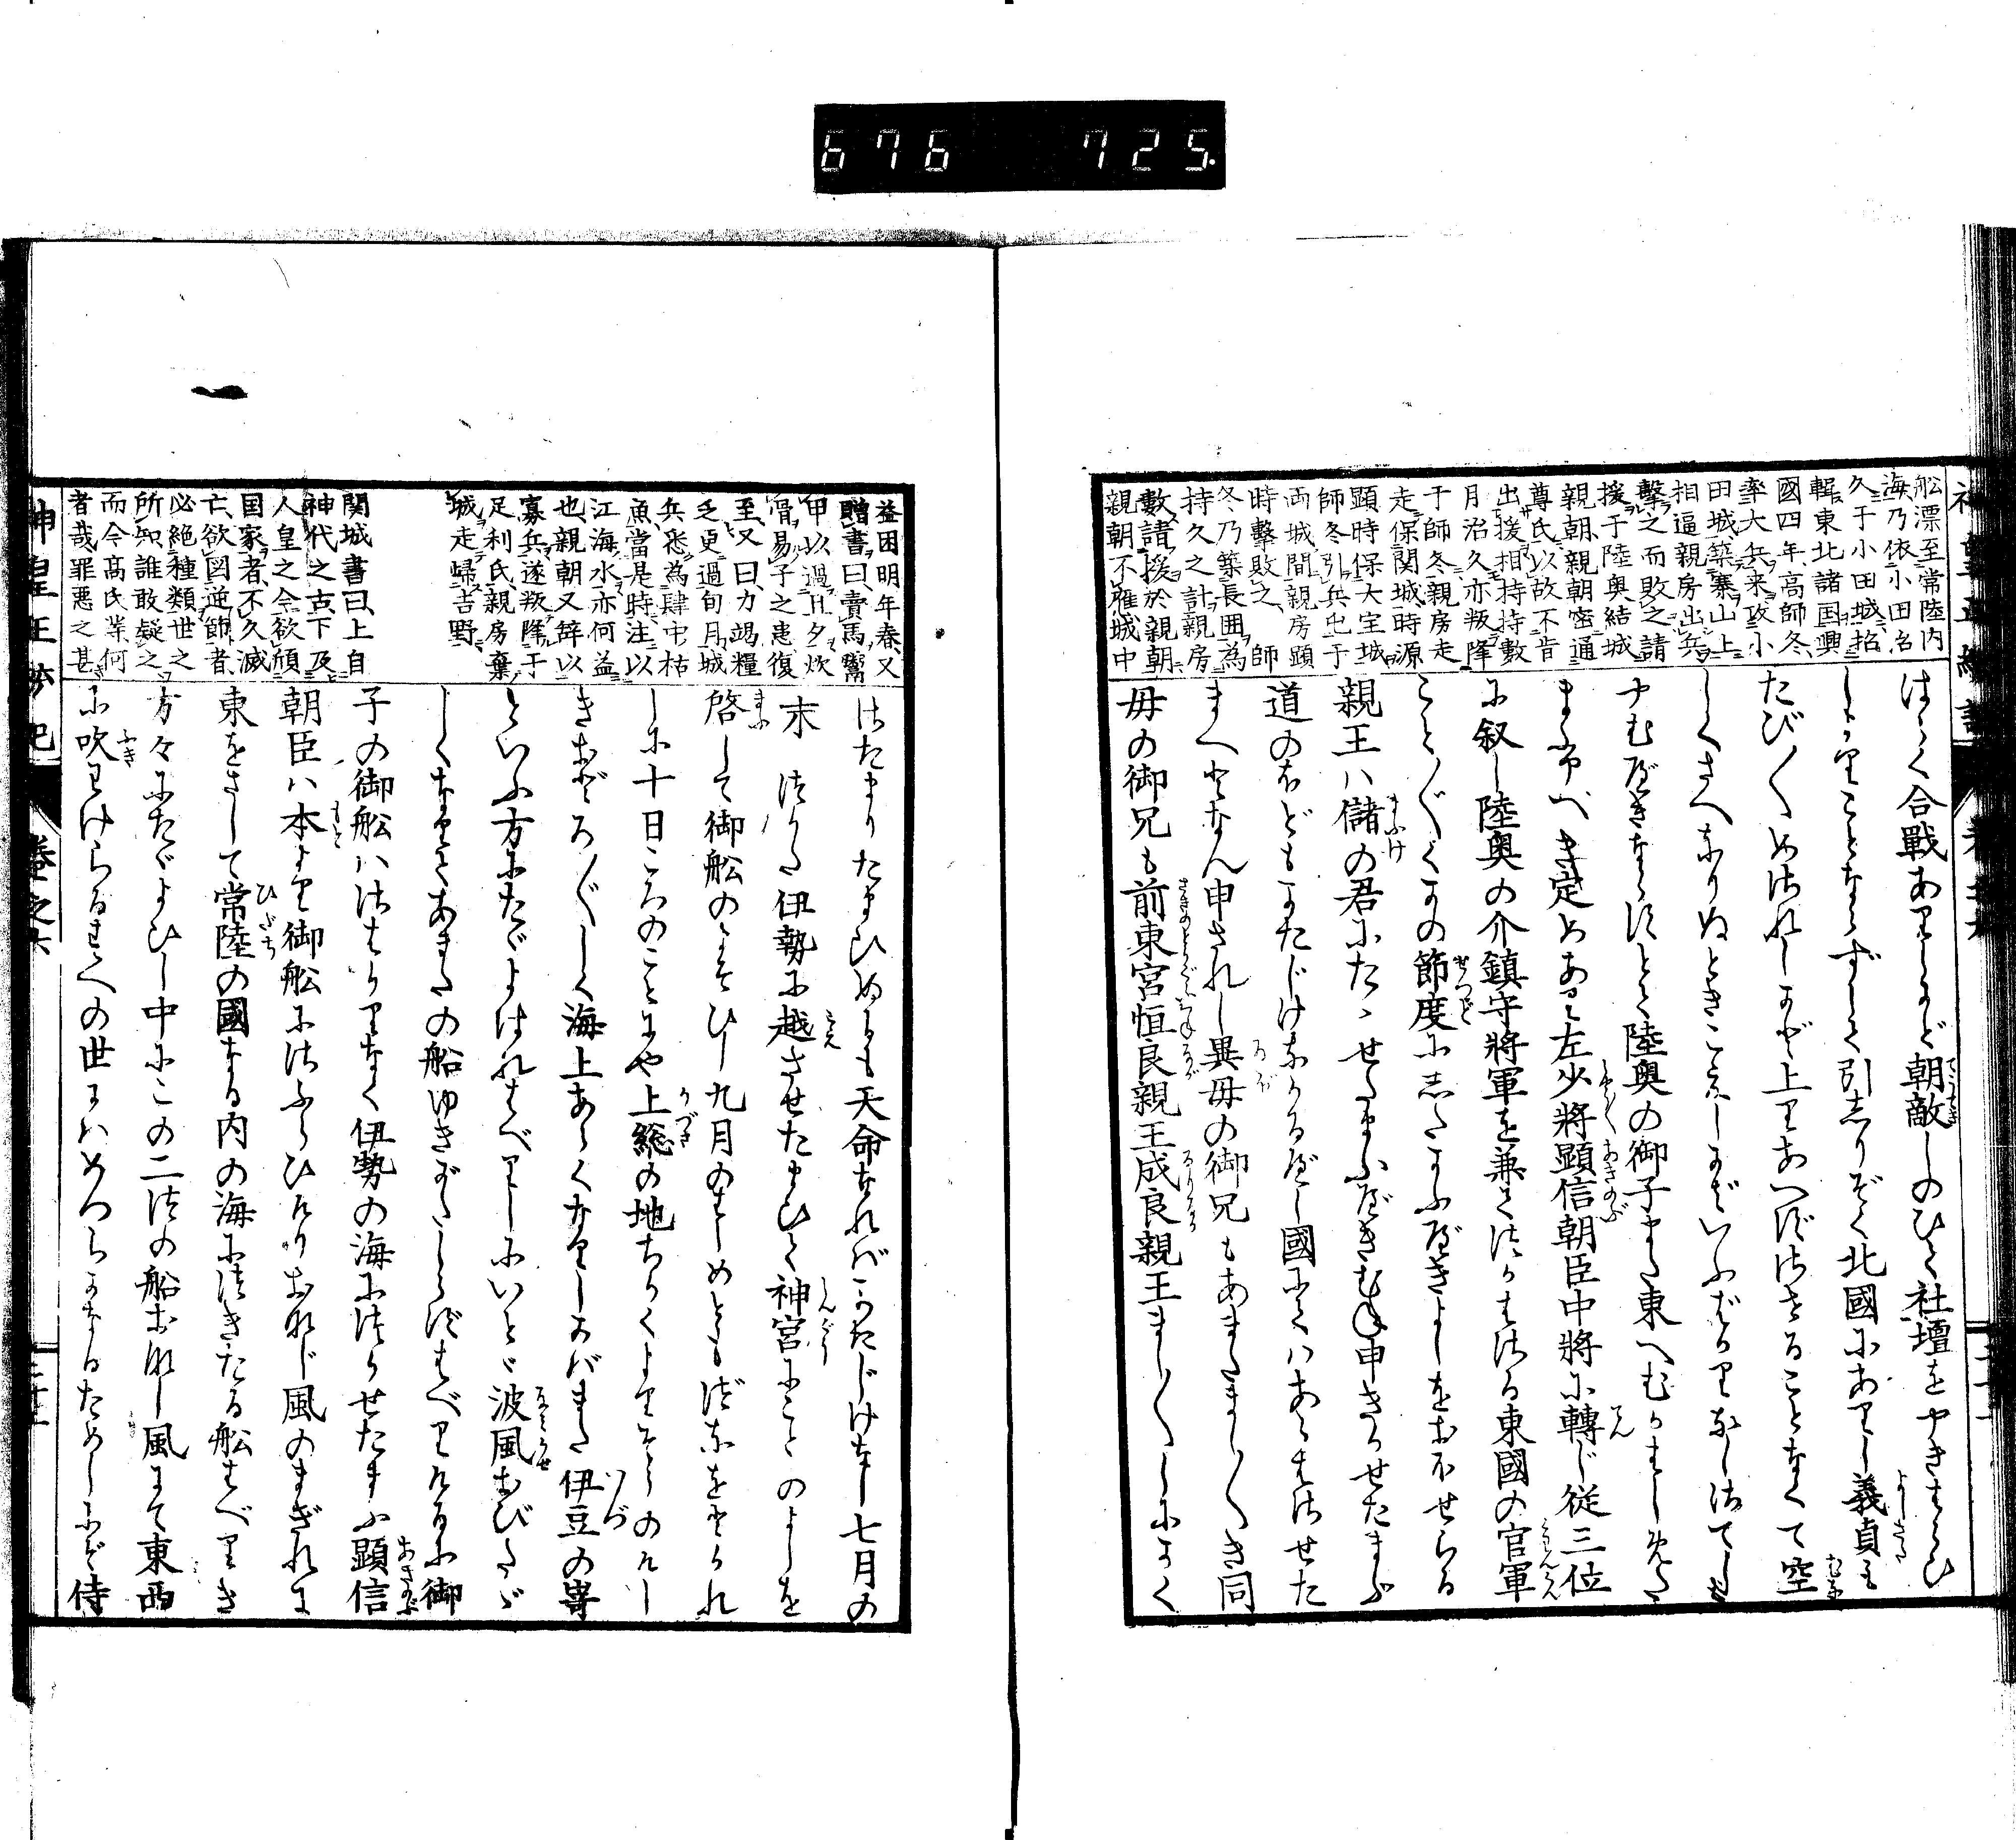 676 725.
舩漂至常陸内
海乃依小田治
久于小田城招
輯東北諸国興
國四年高師冬
率大兵来攻小
田城築寨山上
相逼親房出兵
擊之而敗之請
援于陸奥結城
親朝親朝密通
尊氏以故不肯
出援相持持數
月治久亦叛降
于師冬親房走
走保関城時源
顕時保大宝城
師冬引兵屯于
両城間親房顕
時擊敗之師
冬乃築長囲為
持久之計親房
數請援於親朝
親朝不應城中
はらく合戰ありしかど朝敵しのびて社壇をやきはらひ
しかばことならずして引しりぞく北國にありし義貞も
たび〳〵めされしかど上りあへずさせることなくて空
しくさへなりぬときこえしかばいふばかりなしさてしも
やむべきならずとて陸奥の御子また東へむかはしめた
まふべき定めあり左少將顕信朝臣中將に轉じ従三位
に叙し陸奥の介鎮守將軍を兼てつかはさる東國の官軍
こと〴〵くかの節度にしたがふべきよしをおほせらる
親王ハ儲の君にたゝせたまふべきむね申きかせたまふ
道のほどもかたじけなかるべし國にてハあらはさせた
まへとなん申されし異母の御兄もあまたまし〳〵き同
母の御兄も前東宮恒良親王成良親王まし〳〵しにかく
益困明年春又
贈書曰賣馬鬻
甲以過旦夕炊
骨易子之患復
至又曰力竭糧
乏更過旬月城
兵悉為肆中枯
魚當是時注以
江海水亦何益
也親朝又辞以
寡兵遂叛降于
足利氏親房棄
城走歸吉野
関城書曰上自
神代之古下及
人皇之今欲傾
国家者不久滅
亡欲図逆節者
必絶種類世之
所知誰敢疑之
而今高氏等何
者哉罪悪之甚
さだまりたまひぬるも天命なればかたじけなし七月の
末つかた伊勢に越させたまひて神宮にことのよしを
啓して御舩のよそひし九月のはじめともづなをとかれ
しに十日ころのことにや上総の地ちかくより空のけし
きおどろ〳〵しく海上あらくなりしかばまた伊豆の﨑
といふ方にたゞよはれはべりしにいとゞ波風おびたゞ
しくなりてあまたの船ゆきがたしらずはべりけるに御
子の御舩ハさはりなく伊勢の海につかせたまふ顕信
朝臣ハ本より御舩にさふらひけりおなじ風のまぎれに
東をさして常陸の國なる内の海につきたる舩はべりき
方々にたゞよひし中にこの二つの船おなじ風にて東西
に吹わけらるる末の世にハめづらかなるためしにぞ侍
神皇正統記
巻之六